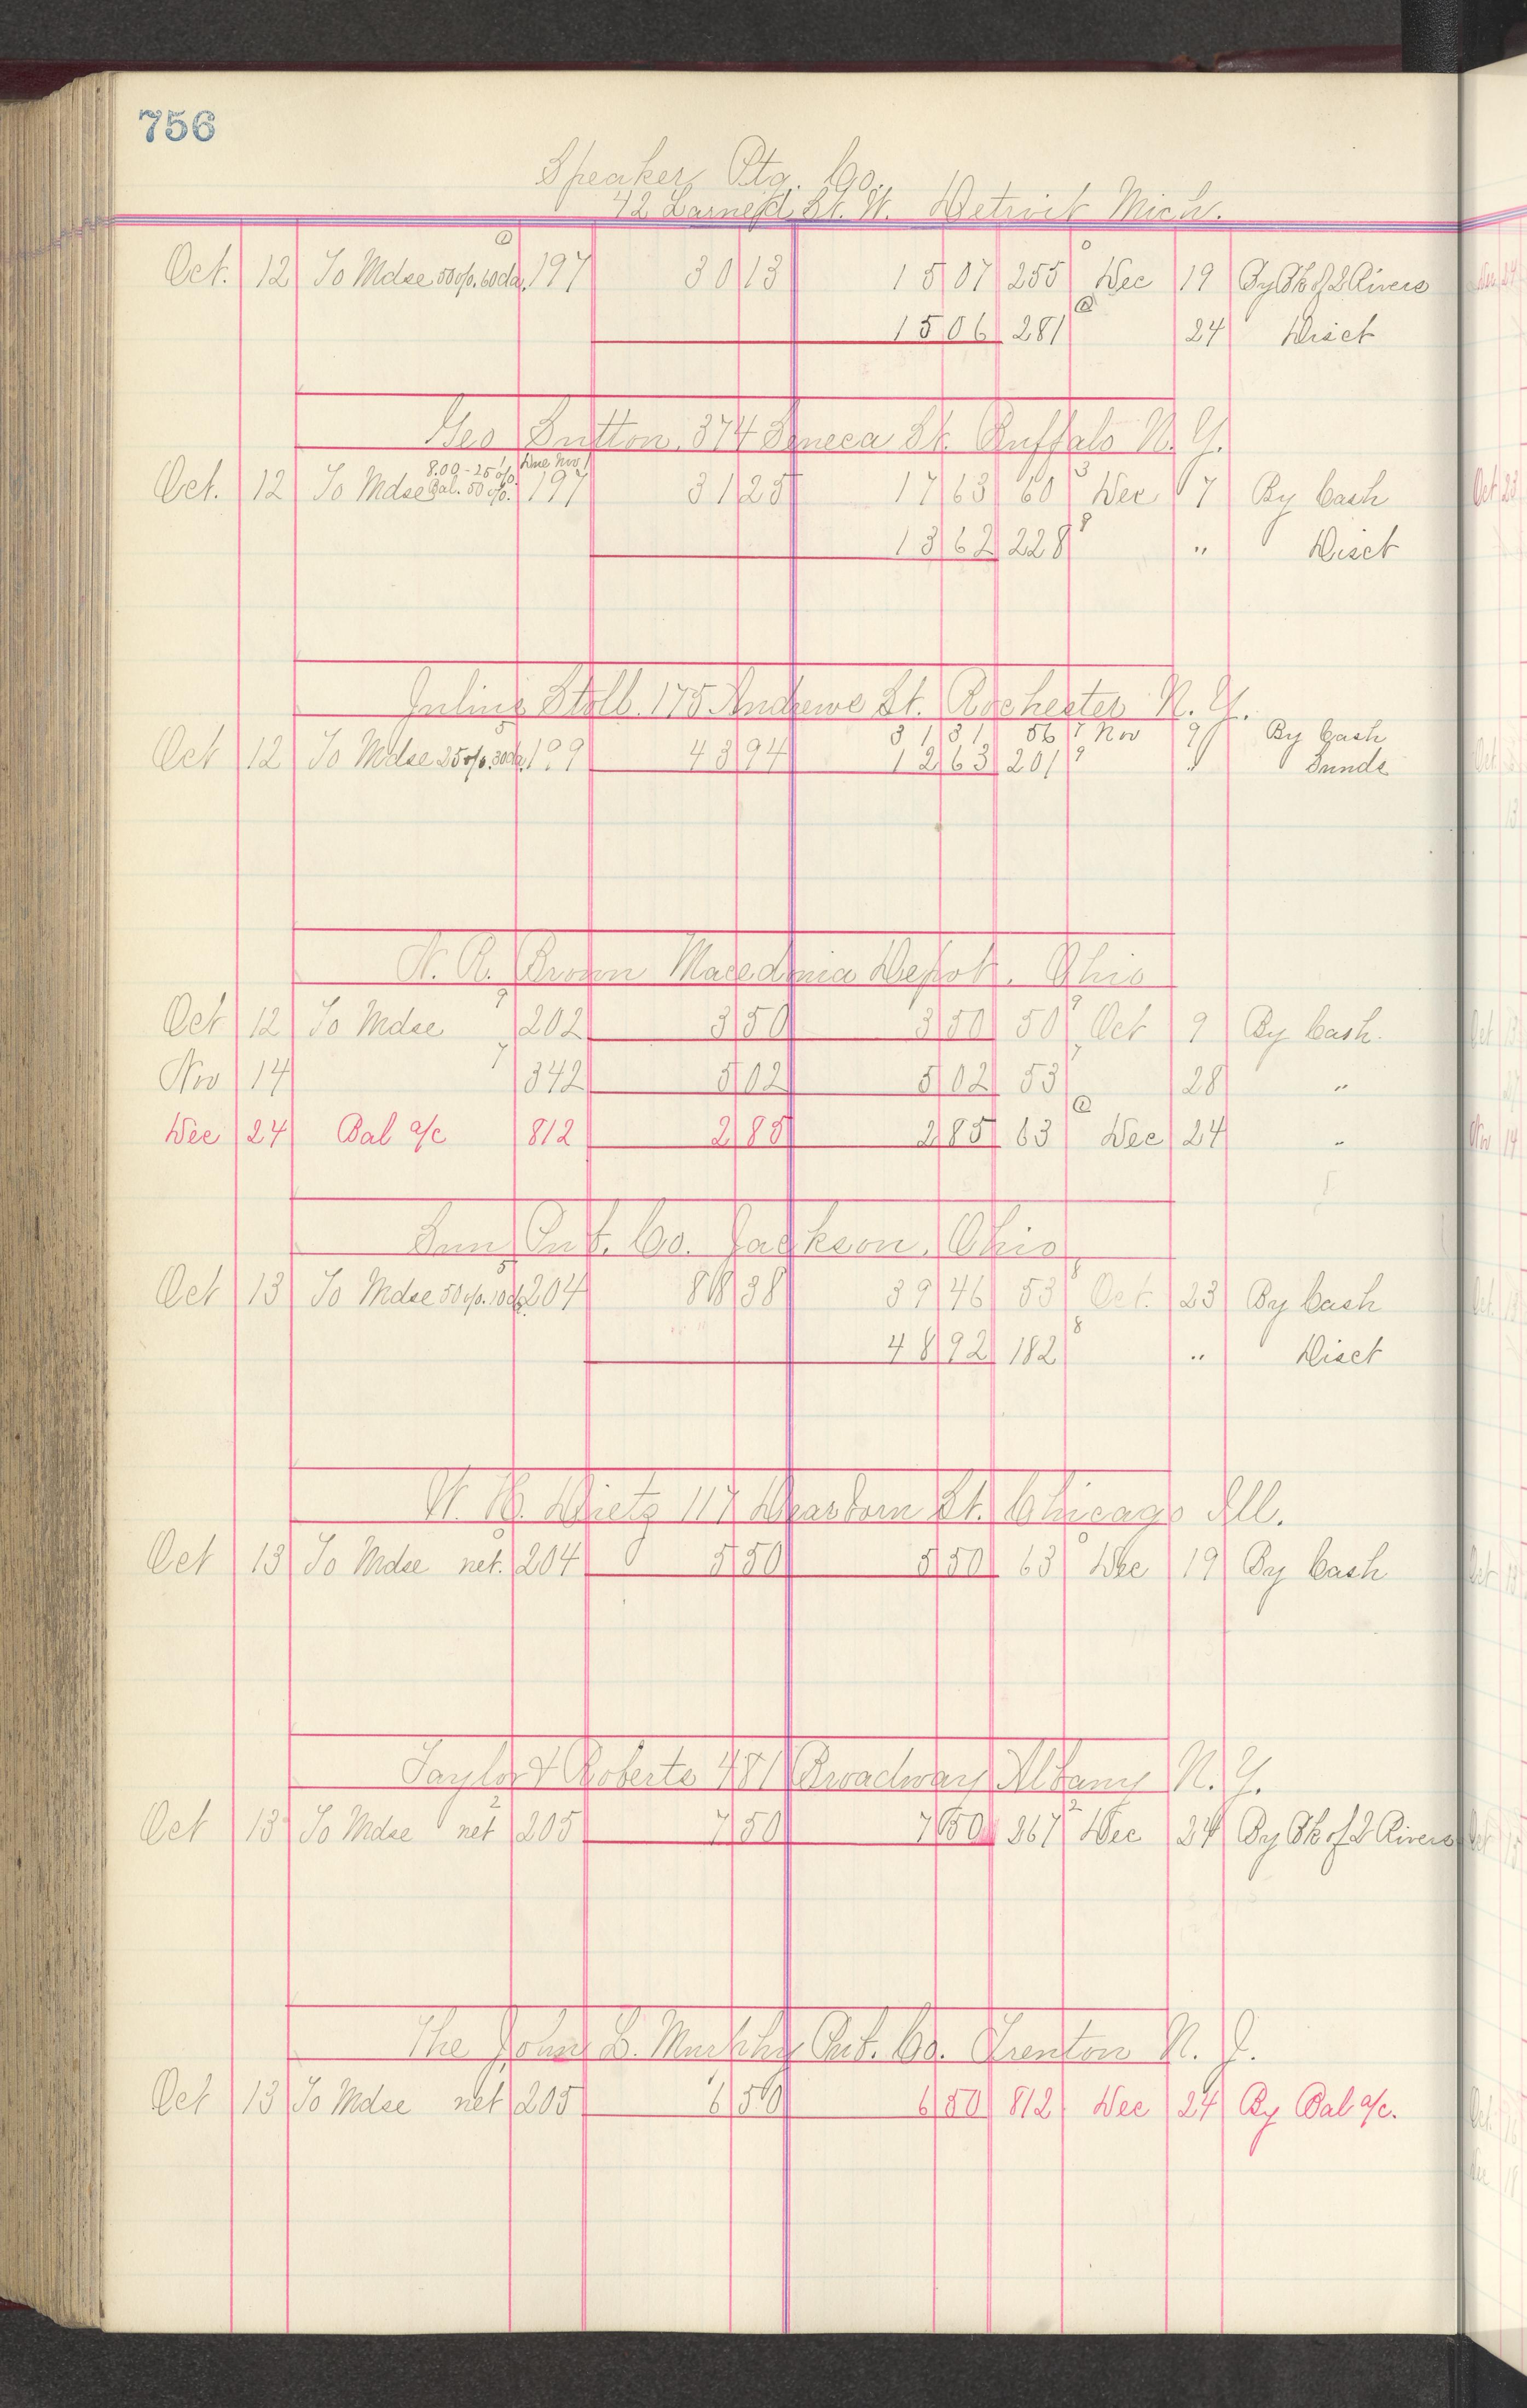 756
Speaker Ptg. Co.
42 Larned St. W. Detroit Mich.
Oct. 12 To Mdse 50%. 60da. 197 30 13 15 07 255 Dec 19 By Bk of 2 Rivers
15 06 281 24 Disct
Geo Sutton. 374 Seneca St. Buffalo N. Y.
8.00 - 25% Due Nov 1
Oct. 12 To Mdse Bal. 50%. 197 31 25 17 63 60 Dec 7 By Cash
13 62 228 " Disct
Julius Stoll. 175 Andrews St. Rochester N. Y.
31 31 56 Nov 9 By Cash
Oct 12 To Mdse 25%. 30da. 199 43 94 12 63 201 " Sunds
Brown Macedonia Depot. Ohio
Oct 12 To Mdse 202 3 50 3 50 50 Oct 9 By Cash.
Nov 14 342 5 02 5 02 53 28 "
Dec 24 Bal a/c 812 2 85 2 85 63 Dec 24 "
Sun Pub. Co. Jackson, Ohio
Oct 13 To Mdse 50%. 10da. 204 88 38 39 46 53 Oct. 23 By Cash
48 92 182 " Disct
Dietz 117 Dearborn St. Chicago Ill.
Oct 13 To Mdse net. 204 5 50 5 50 63 Dec 19 By Cash
Taylor & Roberts 481 Broadway Albany N. Y.
Oct 13 To Mdse net 205 7 50 7 50 267 Dec 24 By Bk of 2 Rivers
The John L. Murphy Pub. Co. Trenton N. J.
Oct 13 To Mdse net 205 6 50 6 50 812 Dec 24 By Bal a/c.